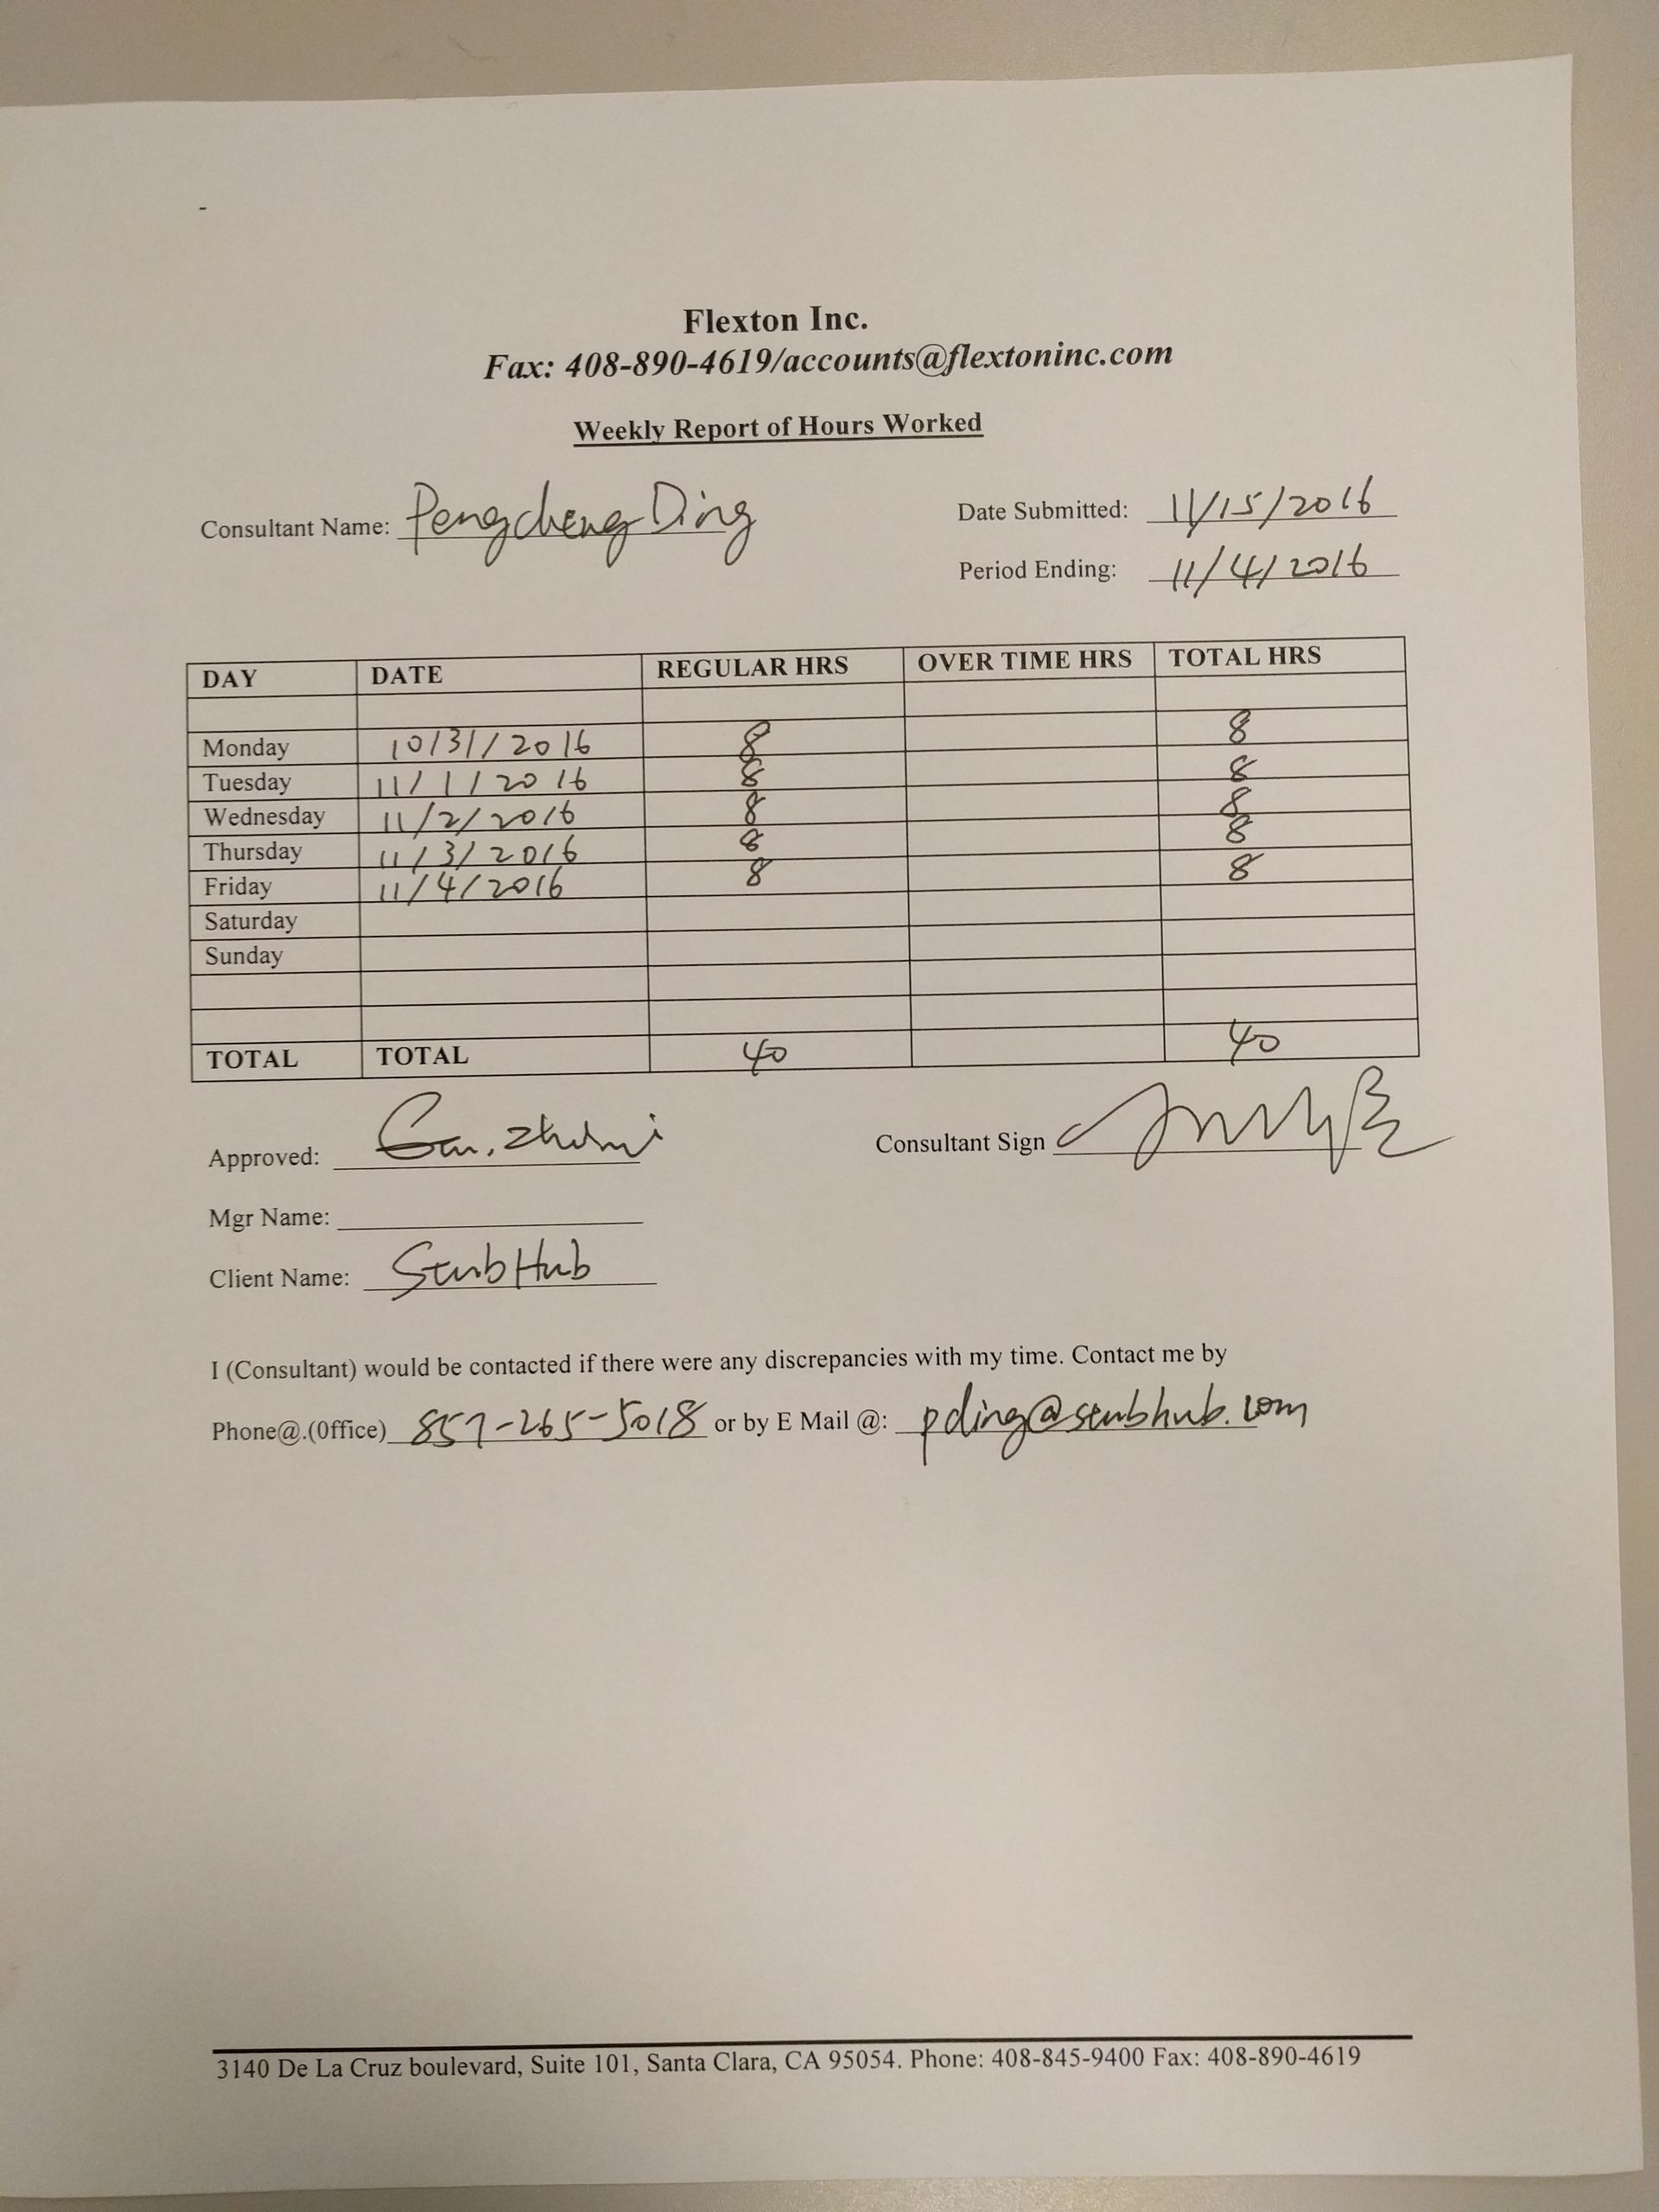 -
Flexton Inc.
Fax: 408-890-4619/accounts@flextoninc.com
Weekly Report of Hours Worked
Consultant Name: Pengcheng Ding
Date Submitted: 11/15/2016
Period Ending: 11/4/2016
DAY DATE REGULAR HRS OVER TIME HRS TOTAL HRS
Monday 10/31/2016 8 8
Tuesday 11/1/2016 8 8
Wednesday 11/2/2016 8 8
Thursday 11/3/2016 8 8
Friday 11/4/2016 8 8
Saturday
Sunday
TOTAL TOTAL 40 40
Approved: Consultant Sign
Mgr Name:
Client Name: StubHub
I (Consultant) would be contacted if there were any discrepancies with my time. Contact me by
Phone@.(0ffice) 857-265-5018 or by E Mail @: pding@stubhub.com
3140 De La Cruz boulevard, Suite 101, Santa Clara, CA 95054. Phone: 408-845-9400 Fax: 408-890-4619